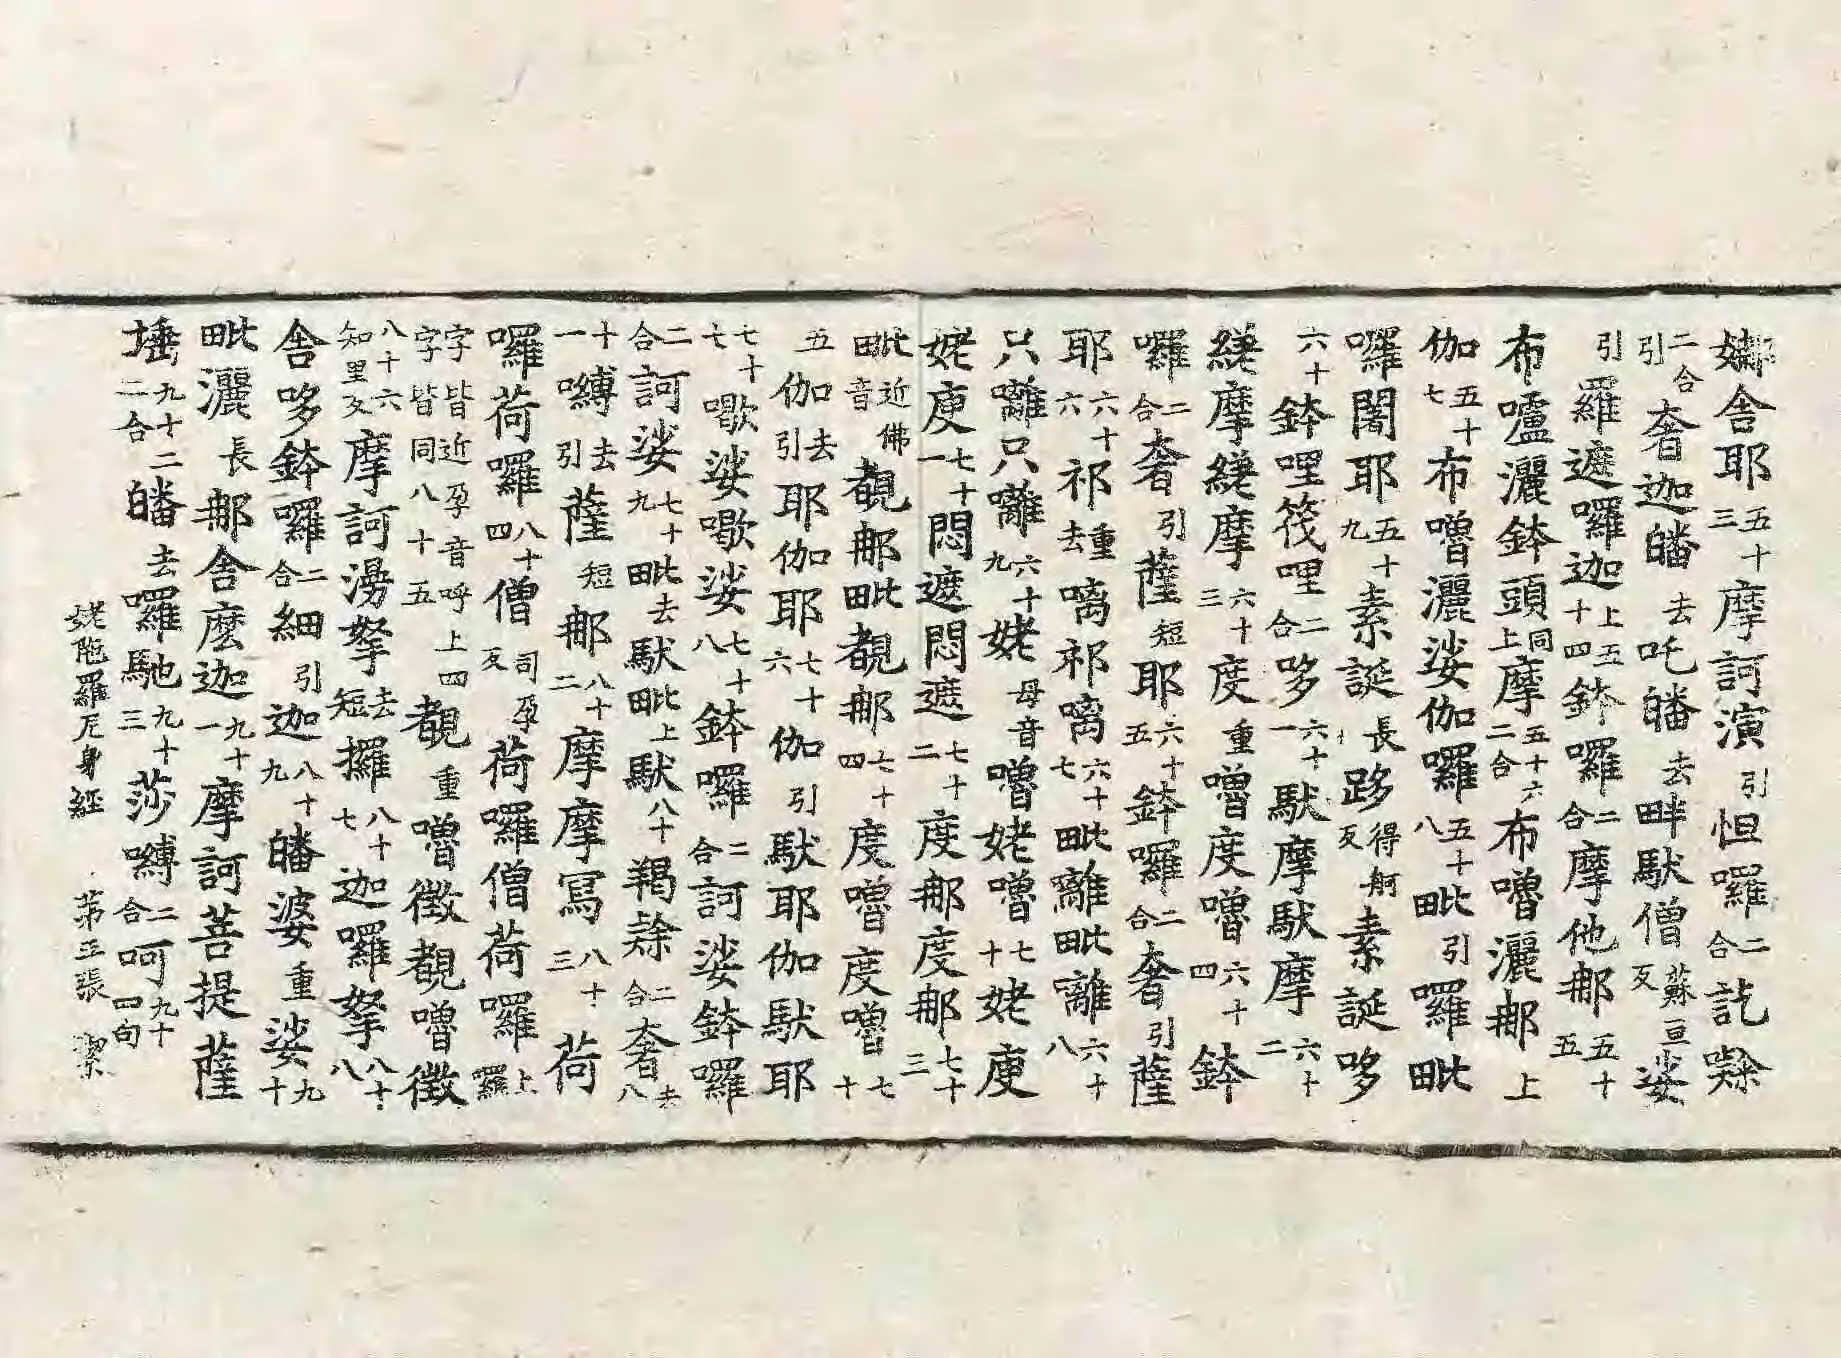 舍耶五十三摩訶演引怛囉二合訖
二合引奢迦皤去吒皤去畔馱僧蘇亘反娑
引羅遮囉迦上五十四鉢囉二合摩他那五十五
布嚧灑鉢頭同上摩二合五十六布嚕灑那上
伽五十七布嚕灑娑伽囉五十八毗引囉毗
囉闍耶五十九素誕長跢得舸反素誕哆
六十鉢哩筏哩二合哆六十一馱摩馱摩六十二
摩摩六十三度重嚕度嚕六十四鉢
囉二合奢引薩短耶六十五鉢囉二合奢引薩
耶六十六祁重去㗚祁㗚六十七毗離毗離六十八
只離只離六十九姥母音嚕姥嚕七十姥庾
姥庾七十一悶遮悶遮七十二度那度那七十三
毗近佛音覩那毗覩那七十四度嚕度嚕七十
五伽去引耶伽耶七十六伽引馱耶伽馱耶
七十七歇娑歇娑七十八鉢囉二合訶娑鉢囉
二合訶娑七十九毗去馱毗上馱八十羯二合奢去八
十一嚩去引薩短那八十二摩摩寫八十三荷
囉荷囉八十四僧司孕反荷囉僧荷囉上囉
字皆近孕音呼上四字皆同八十五覩重嚕徵覩嚕徵
八十六知里反摩訶拏去短攞八十七迦囉拏八十八
舍哆鉢囉二合細引迦八十九皤婆重娑九十
毗灑長那舍麽迦九十一摩訶菩提薩
埵九十二二合皤去囉馳九十三莎嚩二合訶九十四句
姥陁羅尼身經 第五張 潔